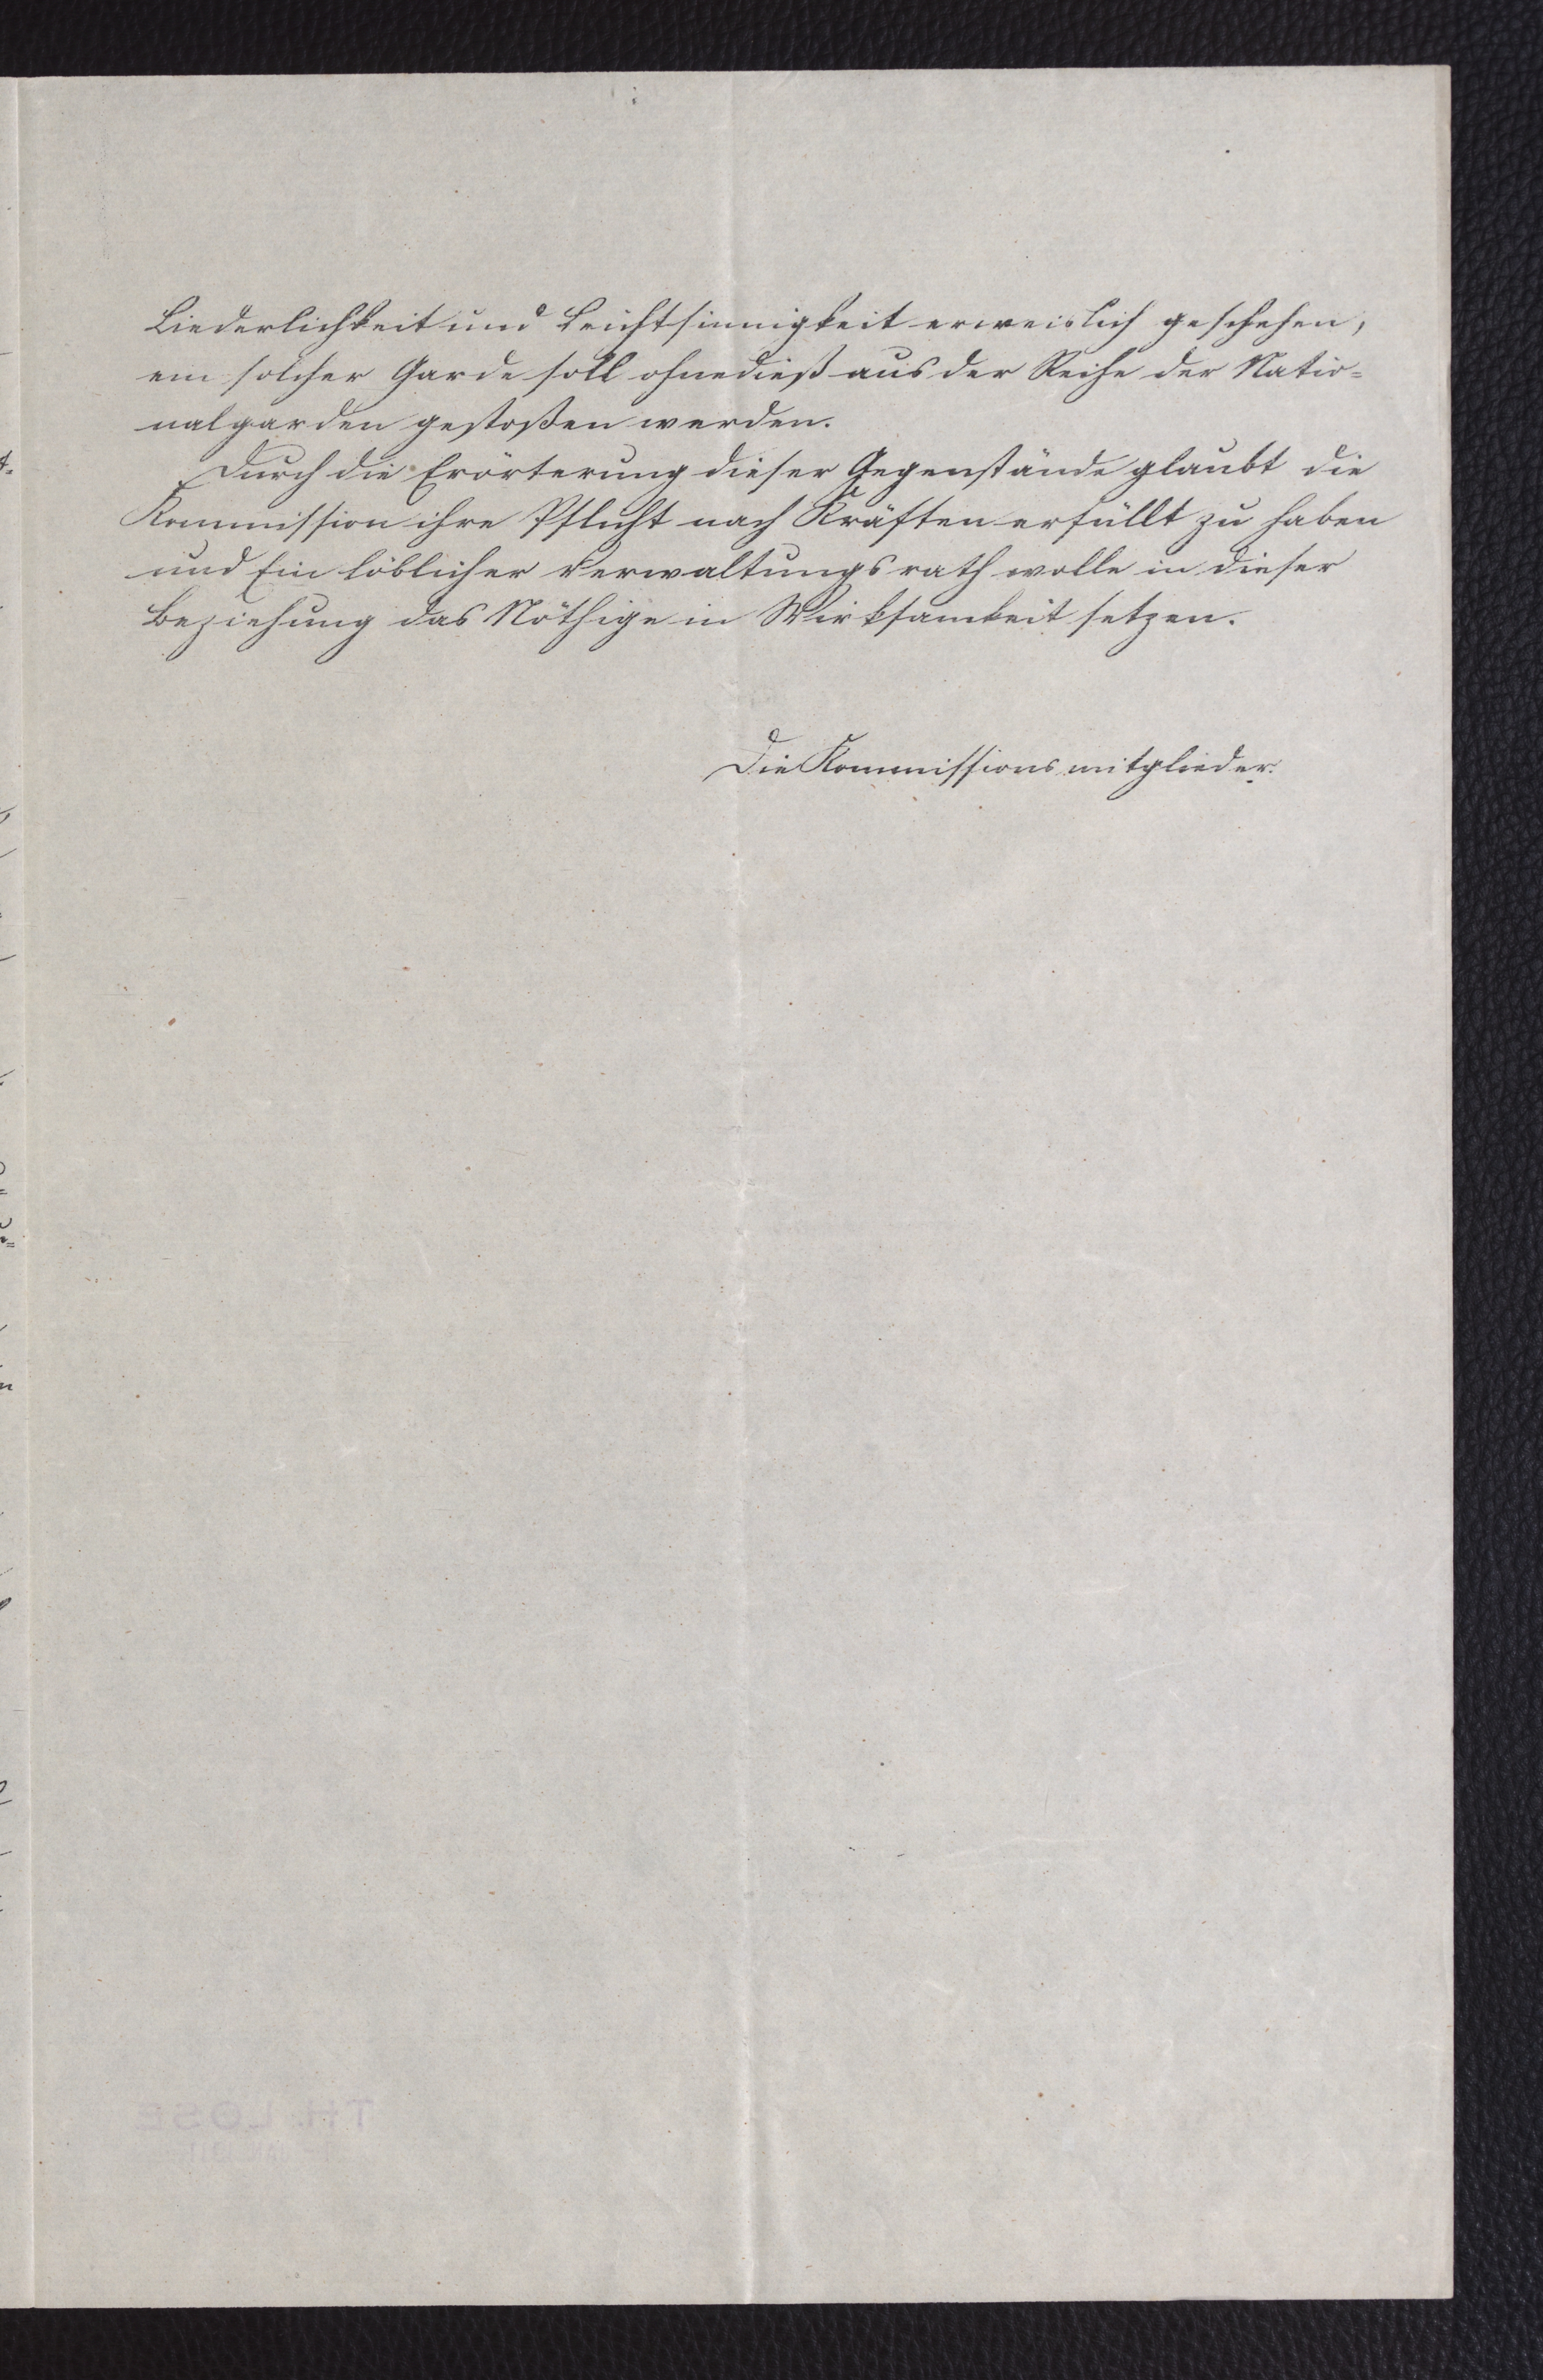 Liederlichkeit und Leichtsinnigkeit erweislich geschehen,
ein solcher Garde soll ohnedieß aus der Reihe der Natio=
nalgarden gestoßen werden.
Durch die Erörterung dieser Gegenstände glaubt die
Kommission ihre Pflicht nach Kräften erfüllt zu haben
und Ein löblicher Verwaltungsrath wolle in dieser
Beziehung das Nöthige in Wirksamkeit setzen.
Die Kommissionsmitglieder.